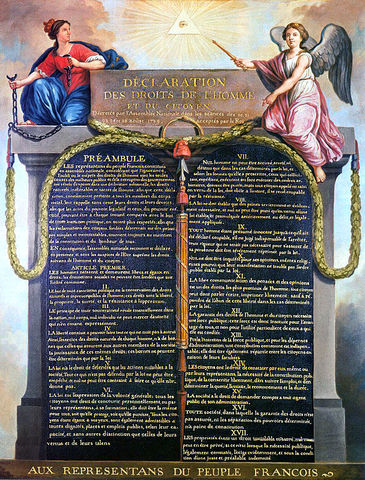 DÉCLARATION
DES DROITS DE L'HOMME
ET DU CITOYEN
Décrétés par l'Assemblée Nationale dans les séances des
PRÉAMBULE
LES représentans du peuple François constitués
en assemblée nationale, considérant que l'ignorance,
l'oubli ou le mépris des droits de l'homme sont les seules
causes des malheurs publics et de la corruption des gouvernemens
les droits naturels, inaliénables et sacrés de l'homme; afin que cette
constamment présente à tous les membres du corps
social, leur rappelle sans cesse leurs droits et leurs devoirs;
que les actes du pouvoir législatif et ceux du pouvoir exé-
cutif, pouvant être à chaque instant comparés avec le but
de toute institution politique, en soient plus respectés; afin que
les réclamations des citoyens, fondées désormais sur des principes
simples et incontestables, tournent toujours au maintien
de la constitution et du bonheur de tous.
EN conséquence, l'assemblée nationale reconnoit et déclare,
en présence et sous les auspices de l'Être suprême les droits
suivans de l'homme et du citoyen.
ARTICLE PREMIER
LES hommes naissent et demeurent libres et égaux en
droits; les distinctions sociales ne peuvent être fondées que sur
l'utilité commune.
II.
LE but de toute association politique est la conservation des droits
naturels et imprescriptibles de l'homme; ces droits sont la liberté,
la propriété, la sureté, et la résistance à l'oppression.
III.
LE principe de toute souveraineté réside essentiellement dans
la nation, nul corps, nul individu ne peut exercer d'autorité
qui n'en émane expressément.
IV.
LA liberté consiste à pouvoir faire tout ce qui ne nuit pas à autrui
Ainsi, l'exercice des droits naturels de chaque homme, n'a de bor-
nes que celles qui assurent aux autres membres de la société
la jouissance de ces mêmes droits; ces bornes ne peuvent
être déterminées que par la loi
V.
LA loi n'a le droit de défendre que les actions nuisibles à la
société. Tout ce qui n'est pas défendu par la loi ne peut être
empêché, et nul ne peut être contraint à faire ce qu'elle n'or-
donne pas.
VI.
LA loi est l'expression de la volonté générale; tous les
citoyens ont droit de concourir personnellement, ou par
leurs représentans, à sa formation; elle doit être la même
pour tous, soit qu'elle protege, soit qu'elle punisse. Tous les citoy-
ens étant égaux à ses yeux, sont également admissibles à
toutes dignités, places et emplois publics, selon leur ca-
pacité, et sans autres distinctions que celles de leurs
vertus et de leurs talens.
VII.
NUL homme ne peut être accusé, arrêté ni
détenu que dans les cas déterminés par la loi, et
selon les formes qu'elle a prescrites
par la résistance.
VIII.
IX.
TOUT homme étant présumé innocent jusqu'à ce qu'il ait
été déclaré coupable, s'il est jugé indispensable de l'arrêter,
toute rigueur qui ne seroit pas nécessaire pour s'assurer de
sa personne doit être sévèrement réprimée par la loi.
X.
NUL ne doit être inquiété pour ses opinions, mêmes religi-
euses pourvu que leur manifestation ne trouble pas l'ordre
public établi par la loi.
XI.
LA libre communication des pensées et des opinions est
un des droits les plus précieux de l'homme; tout citoyen
peut donc parler, écrire, imprimer librement; sauf à ré-
pondre de l'abus de cette liberté dans les cas déterminés
par la loi.
XII.
LA garantie des droits de l'homme et du citoyen nécessite
une force publique; cette force est donc instituée pour l'avan-
tage de tous, et non pour l'utilité particulière de ceux à
qui elle est confiée.
XIII.
POUR l'entretien de la force publique, et pour les dépenses
d'administration, une contribution commune est indispen-
sable; elle doit être également répartie entre les citoyens en
raison de leurs facultés.
XIV.
LES citoyens ont le droit de constater par eux même ou
par leurs représentans, la nécessité de la contribution publi-
que, de la consentir librement, d'en suivre l'emploi, et d'en
déterminer la quotité, l'assiette, le recouvrement et la durée.
XV.
LA société a le droit de demander compte à tout agent
public de son administration.
XVI.
TOUTE société, dans laquelle la garantie des droits n'est
pas assurée, ni les séparation des pouvoirs déterminée,
n'a point de constitution.
XVII.
LES propriétés étant un droit inviolable et sacré, nul ne
peut en être privé, si ce n'est lorsque la nécessité publique,
légalement constatée, l'exige évidemment, et sous la condi-
tion d'une juste et préalable indemnité.
AUX REPRESENTANS DU PEUPLE FRANCOIS